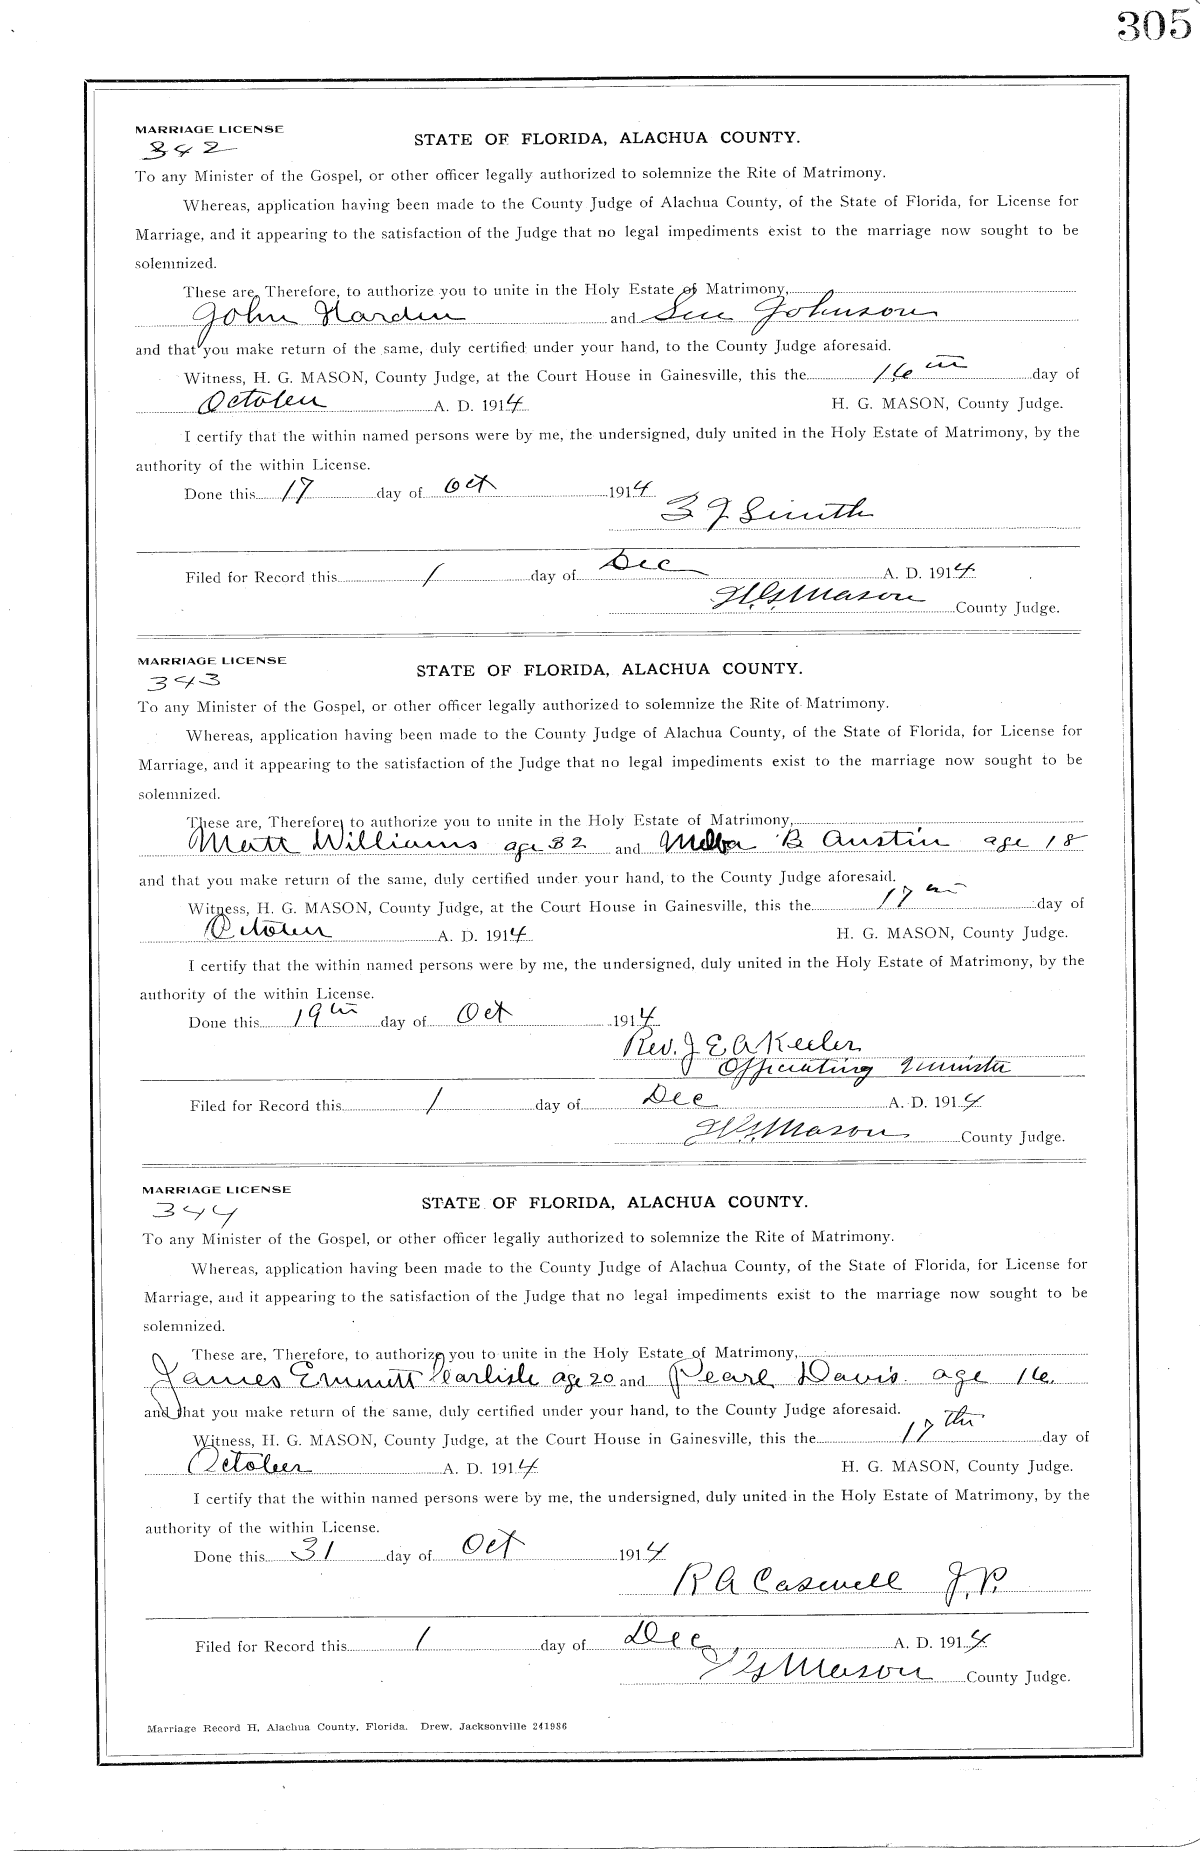 305
MARRIAGE LICENSE
342
STATE OF FLORIDA, ALACHUA COUNTY.
To any Minister of the Gospel, or other officer legally authorized to solemnize the Rite of Matrimony.
Whereas, application having been made to the County Judge of Alachua County, of the State of Florida, for License for
Marriage, and it appearing to the satisfaction of the Judge that no legal impediments exist to the marriage now sought to be
solemnized.
These are, Therefore, to authorize you to unite in the Holy Estate of Matrimony,
John Hardin and Sue Johnson
and that you make return of the same, duly certified under your hand, to the County Judge aforesaid.
Witness, H. G. MASON, County Judge, at the Court House in Gainesville, this the 16th day of
October A. D. 1914 H. G. MASON, County Judge.
I certify that the within named persons were by me, the undersigned, duly united in the Holy Estate of Matrimony, by the
authority of the within License.
Done this 17 day of Oct 1914
Smith
Filed for Record this 1 day of Dec A. D. 1914
H.G. Mason County Judge.
MARRIAGE LICENSE
343
STATE OF FLORIDA, ALACHUA COUNTY.
To any Minister of the Gospel, or other officer legally authorized to solemnize the Rite of Matrimony.
Whereas, application having been made to the County Judge of Alachua County, of the State of Florida, for License for
Marriage, and it appearing to the satisfaction of the Judge that no legal impediments exist to the marriage now sought to be
solemnized.
These are, Therefore, to authorize you to unite in the Holy Estate of Matrimony,
Matt Williams age 32 and Melba B Austin age 18
and that you make return of the same, duly certified under your hand, to the County Judge aforesaid.
Witness, H. G. MASON, County Judge, at the Court House in Gainesville, this the 17th day of
October A. D. 1914 H. G. MASON, County Judge.
I certify that the within named persons were by me, the undersigned, duly united in the Holy Estate of Matrimony, by the
authority of the within License.
Done this 19th day of Oct 1914
Rev. J E A Keeler
Officiating Minister
Filed for Record this 1 day of Dec A. D. 1914
H.G. Mason County Judge.
MARRIAGE LICENSE
344
STATE OF FLORIDA, ALACHUA COUNTY.
To any Minister of the Gospel, or other officer legally authorized to solemnize the Rite of Matrimony.
Whereas, application having been made to the County Judge of Alachua County, of the State of Florida, for License for
Marriage, and it appearing to the satisfaction of the Judge that no legal impediments exist to the marriage now sought to be
solemnized.
These are, Therefore, to authorize you to unite in the Holy Estate of Matrimony,
James Emmett Carlisle age 20 and Pearl Davis age 16
and that you make return of the same, duly certified under your hand, to the County Judge aforesaid.
Witness, H. G. MASON, County Judge, at the Court House in Gainesville, this the 17th day of
October A. D. 1914 H. G. MASON, County Judge.
I certify that the within named persons were by me, the undersigned, duly united in the Holy Estate of Matrimony, by the
authority of the within License.
Done this 31 day of Oct 1914
R A Caswell J.P.
Filed for Record this 1 day of Dec A. D. 1914
H G Mason County Judge.
Marriage Record H, Alachua County, Florida. Drew, Jacksonville 241986